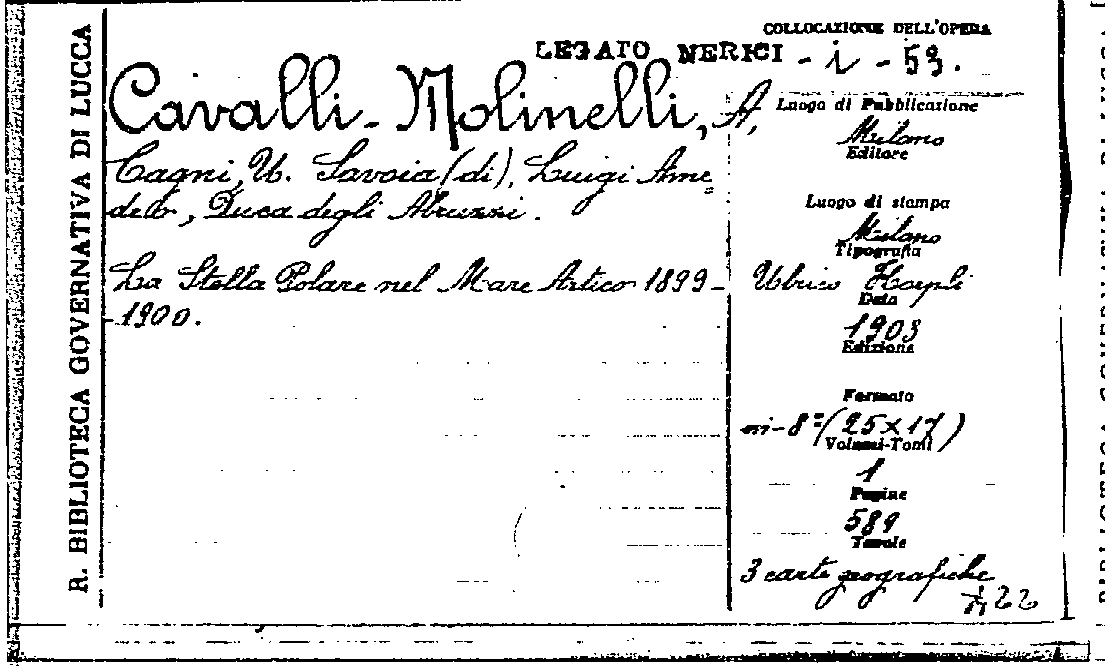 R. BIBLIOTECA GOVERNATIVA DI LUCCA
COLLOCAZIONE DELL'OPERA
LEGATO NERICI - i - 53.
Cavalli-Molinelli, A,
Cagni, U. Savoia (di), Luigi Ame=
deo, Duca degli Abruzzi.
La Stella Polare nel Mare Artico 1899-
-1900.
Luogo di Pubblicazione
Milano
Editore
Luogo di stampa
Milano
Tipografia
Ulrico Hoepli
Data
1903
Edizione
Formato
in-8° (25x17)
Volumi-Tomi
1
Pagine
589
Tavole
3 carte geografiche